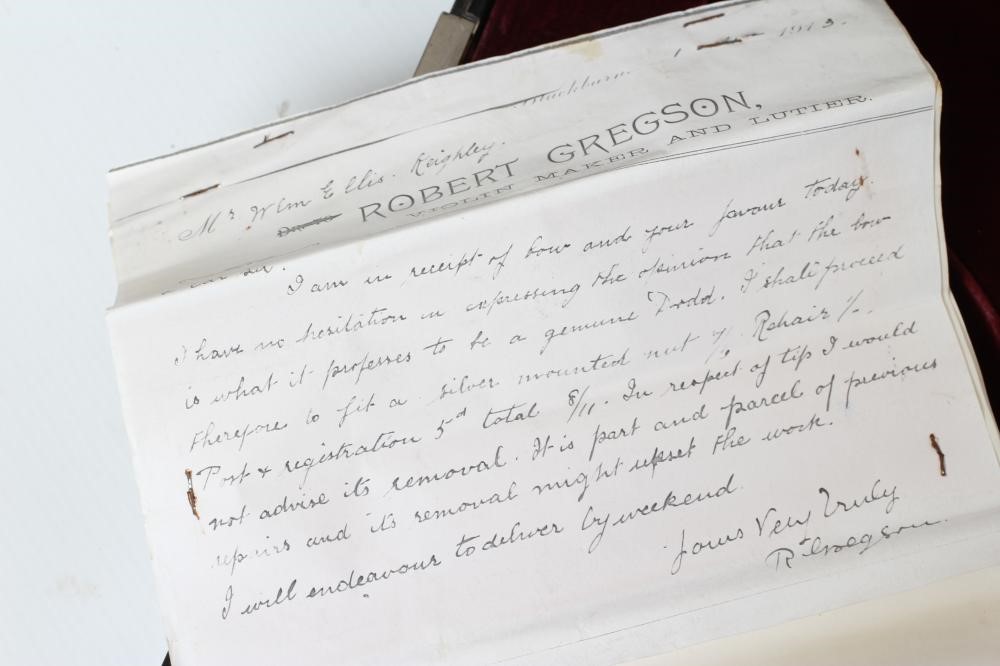 Blackburn. 1 1913.
ROBERT GREGSON,
VIOLIN MAKER AND LUTIER.
Mr. Wm Ellis. Keighley.
Dear Sir.
I am in receipt of bow and your favour today.
I have no hesitation in expressing the opinion that the bow
is what it professes to be a genuine Dodd. I shall proceed
therefore to fit a silver mounted nut Rehair 1/-.
Post & registration 5d total 8/11. In respect of tip I would
not advise its removal. It is part and parcel of previous
repairs and its removal might upset the work.
I will endeavour to deliver by weekend.
Yours Very Truly
Rt Gregson.